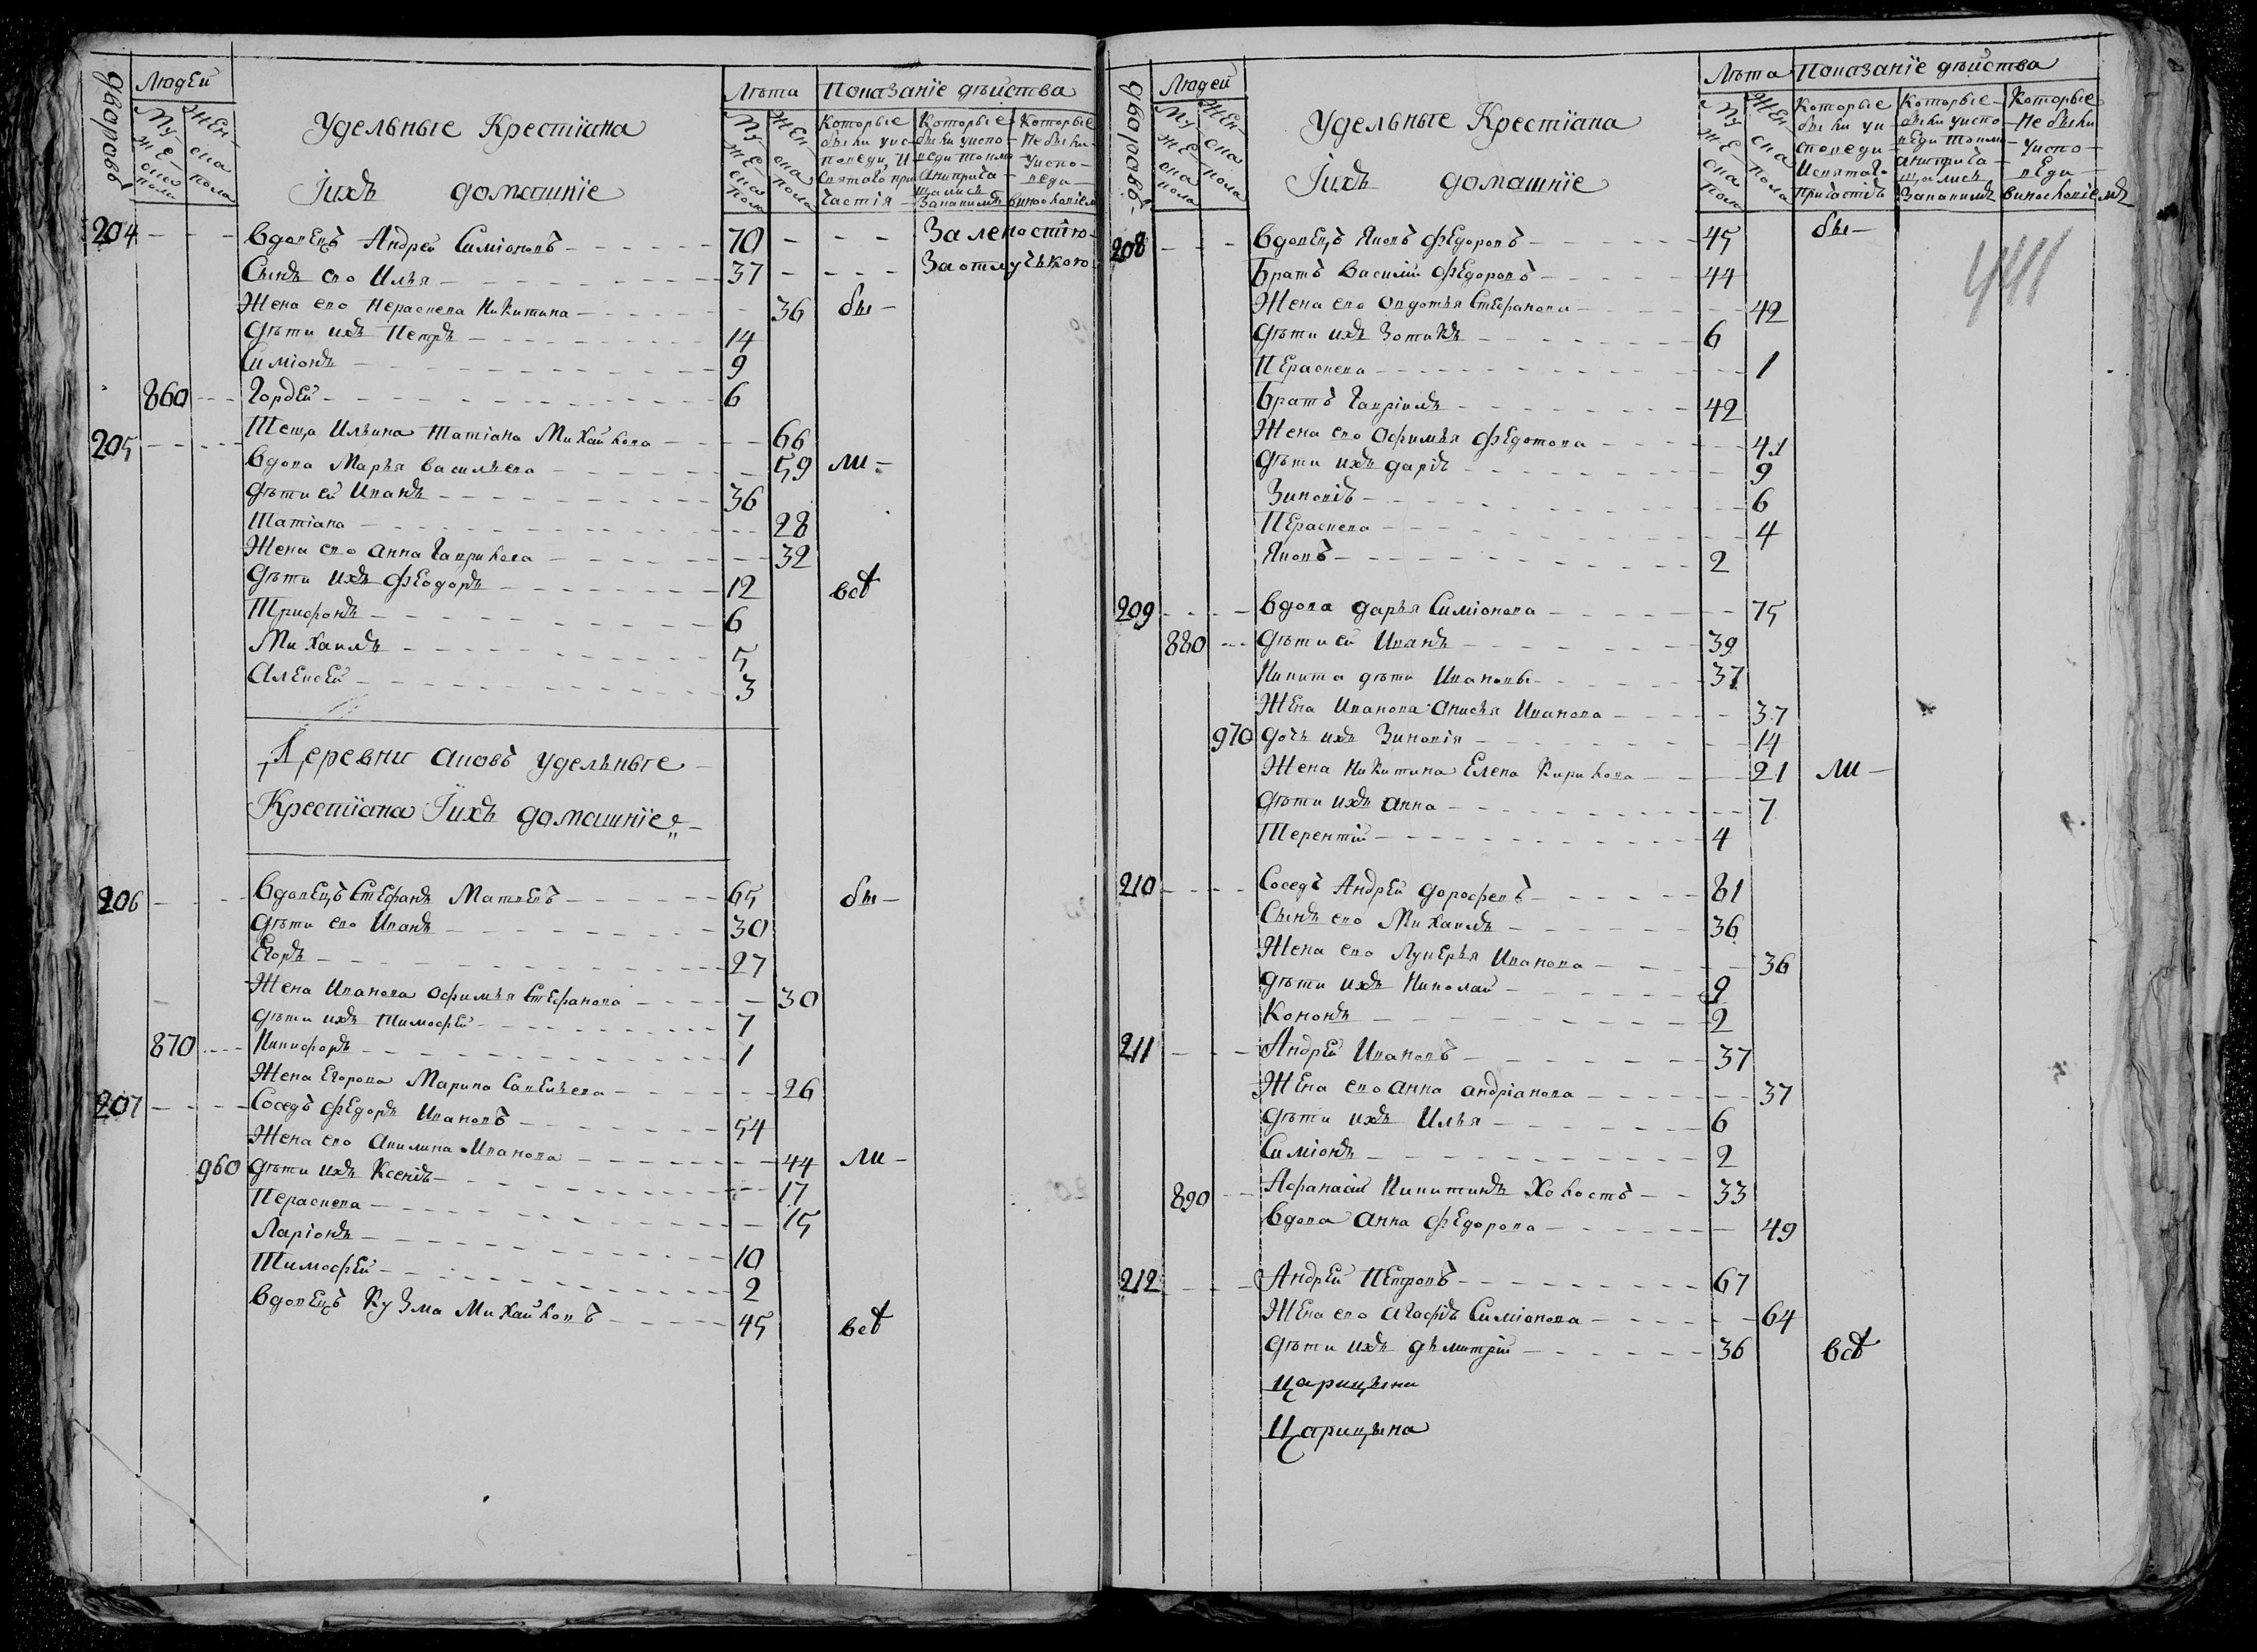 дворовъ
Людей
Му-
же-
ска
пола
Жен-
ска
пола
Удельные Крестїана
Їихъ домашнїе
Лѣта
Му-
же-
ска
пола
Жен-
ска
пола
Показанїе дѣиства
Которые
были уис-
поведи, И
Святаго при
Частїя
Которые
были уиспо-
веди токмо
Анеприча-
щались
Закакимъ
Которые
Не были
уиспо-
веди
виноскопїемъ
204 Вдовецъ Андрей Симіоновъ 70 За леностїю
Сынъ ево Илья 37 За отлучькою
Жена ево Пераскева Никитина 36 бы-
Дѣти ихъ Петръ 14
Симіонъ 9
860 Гордей 6
Теща Ильина Татіана Михайлова 66
205 Вдова Марья Васильева 59 ли-
Дѣти ей Иванъ 36
Татіана 28
Жена ево Анна Гаврилова 32
Дѣти ихъ Феодоръ 12 всѣ
Трифонъ 6
Михаилъ 5
Алексей 3
Деревни Аковъ удельные
Крестїана Їихъ домашнїе
206 Вдовецъ Стефанъ Матвевъ 65 бы-
Дѣти ево Иванъ 30
Егоръ 27
Жена Иванова Офимья Стефанова 30
Дѣти ихъ Тимофей 7
870 Никифоръ 1
Жена Егорова Марина Савельева 26
207 Соседъ Федоръ Ивановъ 54
Жена ево Акилина Иванова 44 ли-
960 Дѣти ихъ Ксеніѣ 17
Пераскева 15
Ларіонъ 10
Тимофей 2
Вдовецъ Кузма Михайловъ 45 всѣ
дворовъ
Людей
Му-
же-
ска
пола
Жен-
ска
пола
Удельные Крестїана
Їихъ домашнїе
Лѣта
Му-
же-
ска
пола
Жен-
ска
пола
Показанїе дѣиства
Которые
были уи-
споведи
Исвятаго
Причастіѣ
Которые
были уиспо-
веди токмо
Анеприча-
щались
Закакимъ
Которые
Не были
уиспо-
веди
виноскопїемъ
208 Вдовецъ Яковъ Федоровъ 45 бы-
Братъ Василий Федоровъ 44
Жена ево Овдотья Стефанова 42
Дѣти ихъ Зотикъ 6
Пераскева 1
Братъ Гавріилъ 42
Жена ево Офимья Федотова 41
Дѣти ихъ Даріѣ 9
Зиновіѣ 6
Пераскева 4
Яковъ 2
209 Вдова Дарья Симіонова 75
880 Дѣти ей Иванъ 39
Никита дѣти Ивановы 37
Жена Иванова Анисья Иванова 37
970 Дочь ихъ Зиновія 14
Жена Никитина Елена Кирилова 21 ли-
Дѣти ихъ Анна 7
Терентій 4
210 Соседъ Андрей Дорофевъ 81
Сынъ ево Михаилъ 36
Жена ево Лукерья Иванова 36
Дѣти ихъ Николай 9
Кононъ 2
211 Андрей Ивановъ 37
Жена ево Анна Андріанова 37
Дѣти ихъ Илья 6
Симіонъ 2
890 Афанасій Никитинъ Холостъ 33
Вдова Анна Федорова 49
212 Андрей Петровъ 67
Жена ево Агафіѣ Симіонова 64
Дѣти ихъ Дьмитрій 36 всѣ
Царицыни
Царицына